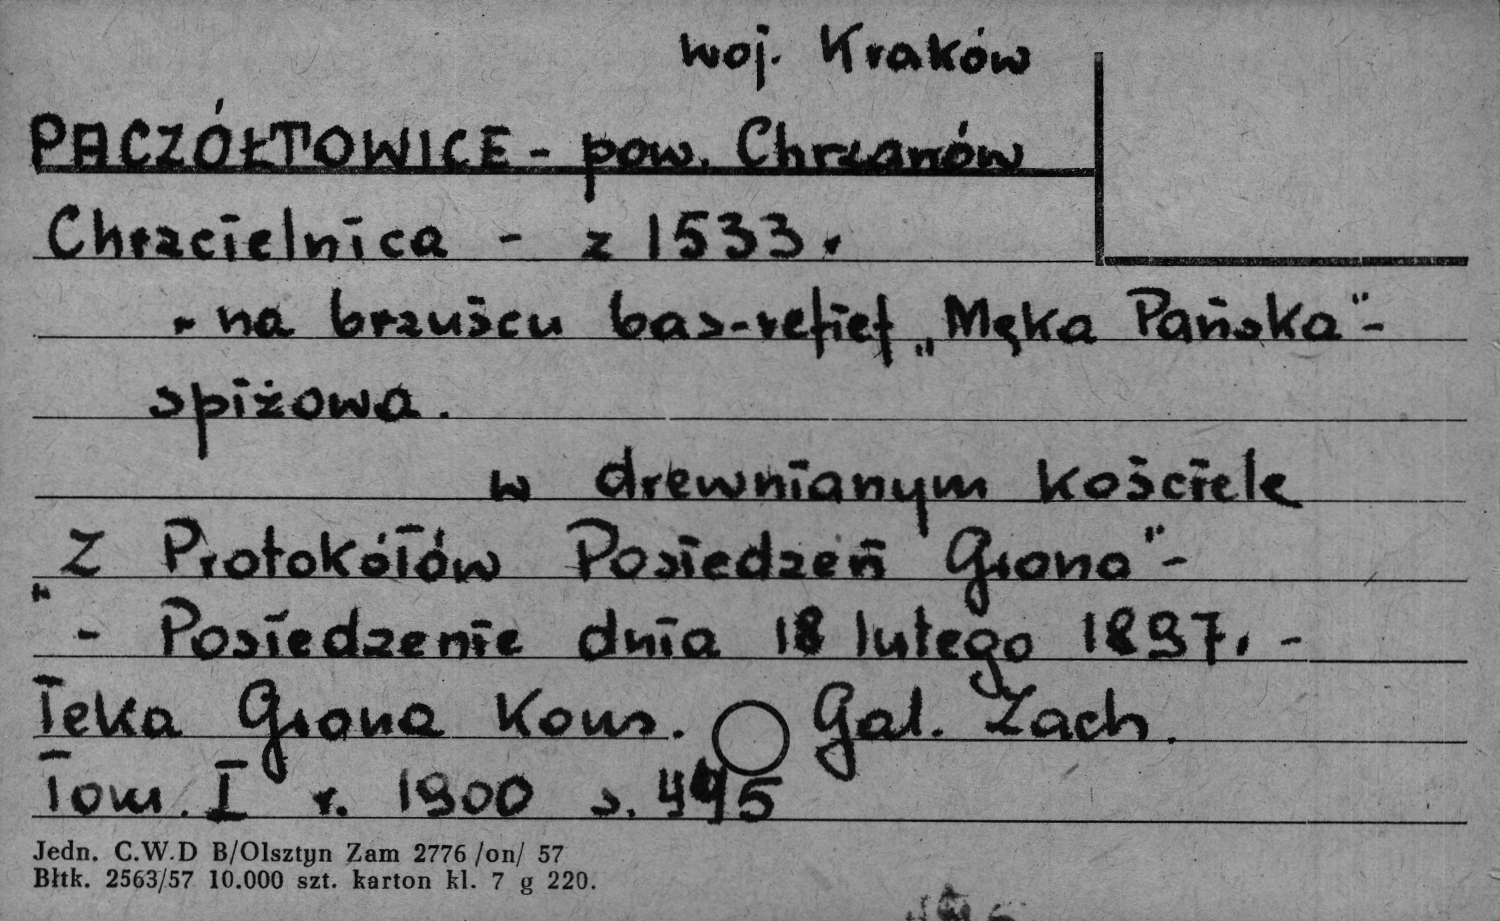 woj. Kraków
PACZÓŁTOWICE - pow. Chrzanów
Chrzcielnica - z 1533 r
- na brzuścu bas-relief „Męka Pańska" -
spiżowa.
w drewnianym kościele
"Z Protokółów Posiedzeń Grona" -
- Posiedzenie dnia 18 lutego 1897. -
Teka Grona Kons. Gal. Zach.
Tom. I r. 1900 s. 445
Jedn. C.W.D B/Olsztyn Zam 2776 /on/ 57
Błtk. 2563/57 10.000 szt. karton kl. 7 g 220.